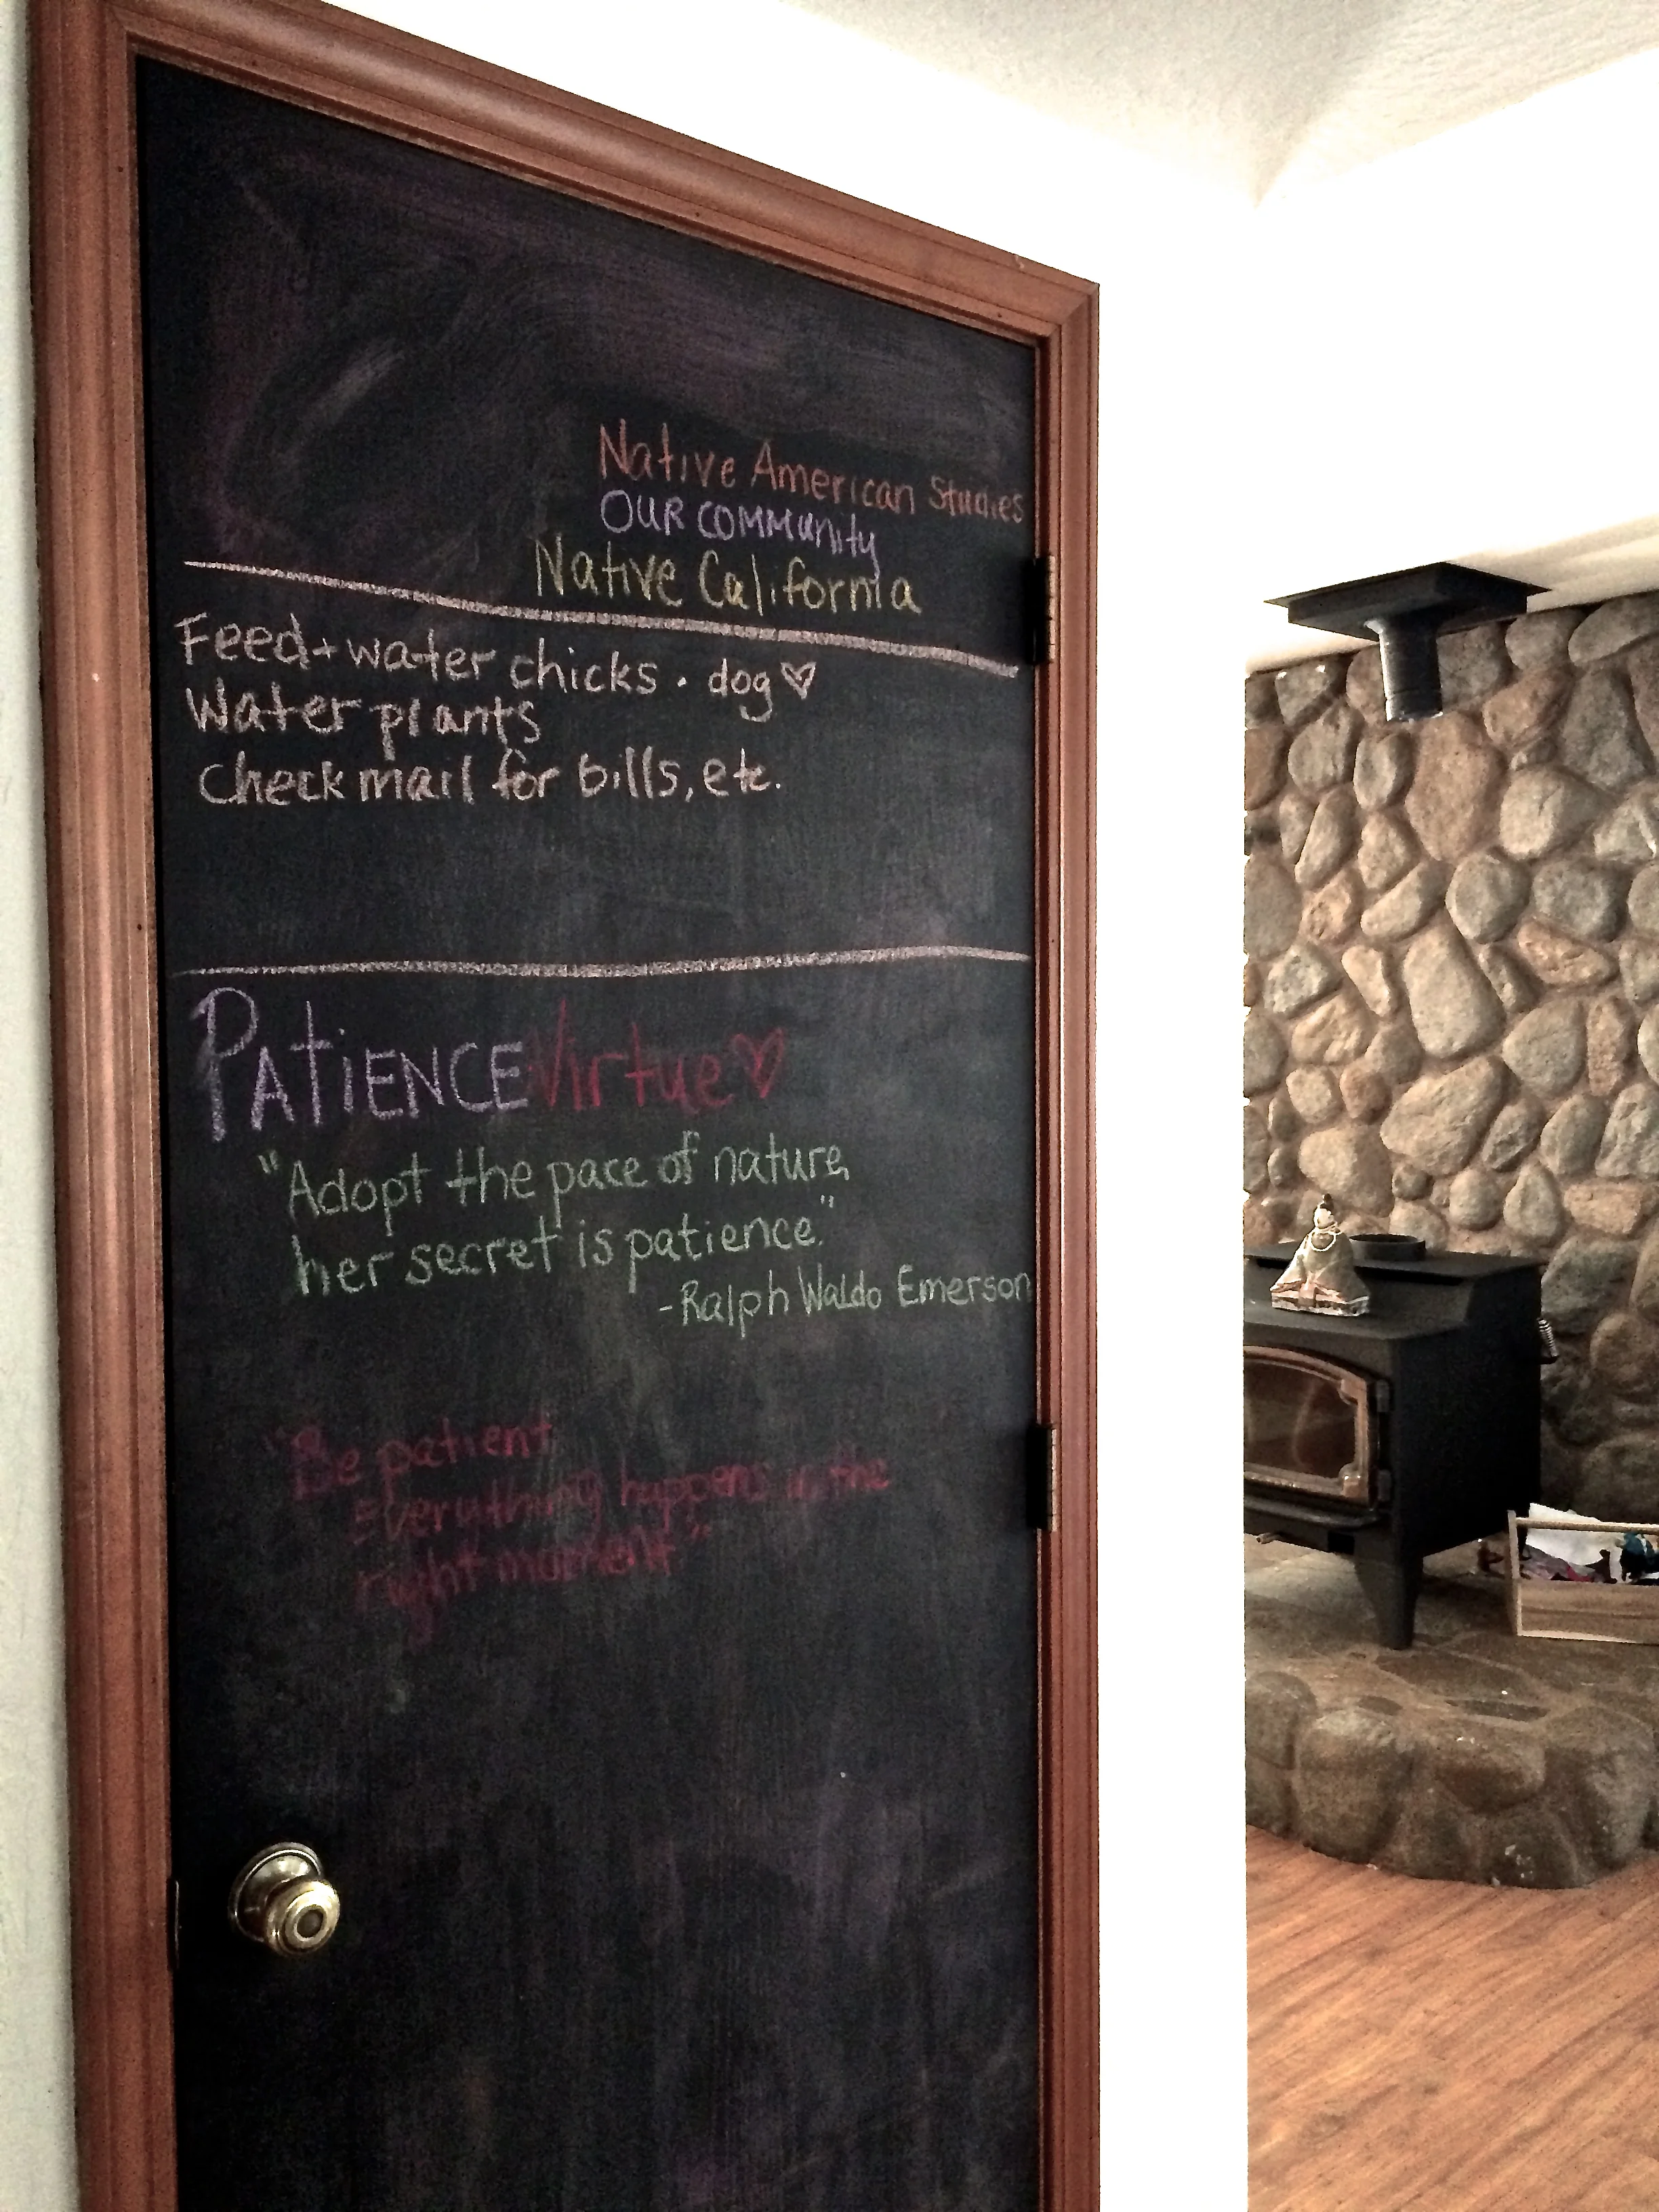 Native American Studies
OUR COMMUnity
Native California
Feed + water chicks · dog ♡
Water plants
Check mail for bills, etc.
PATiENCE Virtue ♡
"Adopt the pace of nature,
her secret is patience."
-Ralph Waldo Emerson
"Be patient
Everything happens at the
right moment"